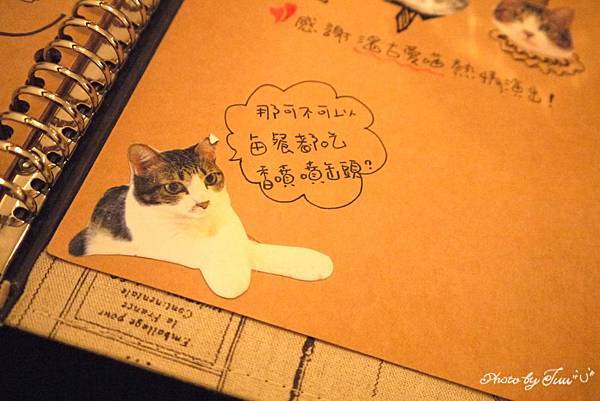 感謝 濱古愛喵 熱情演出!
那可不可以
每餐都吃
香噴噴缶頭?
Emballage pour
la France
Continentale
Photo by Juu